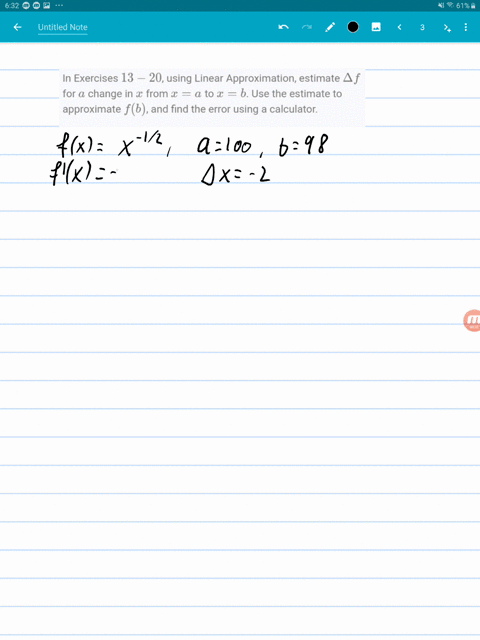 6:32 61%
Untitled Note 3
In Exercises 13 – 20, using Linear Approximation, estimate Δf
for a change in x from x = a to x = b. Use the estimate to
approximate f(b), and find the error using a calculator.
f(x) = x^{-1/2}, a=100, b=98
f'(x) = - Δx = -2